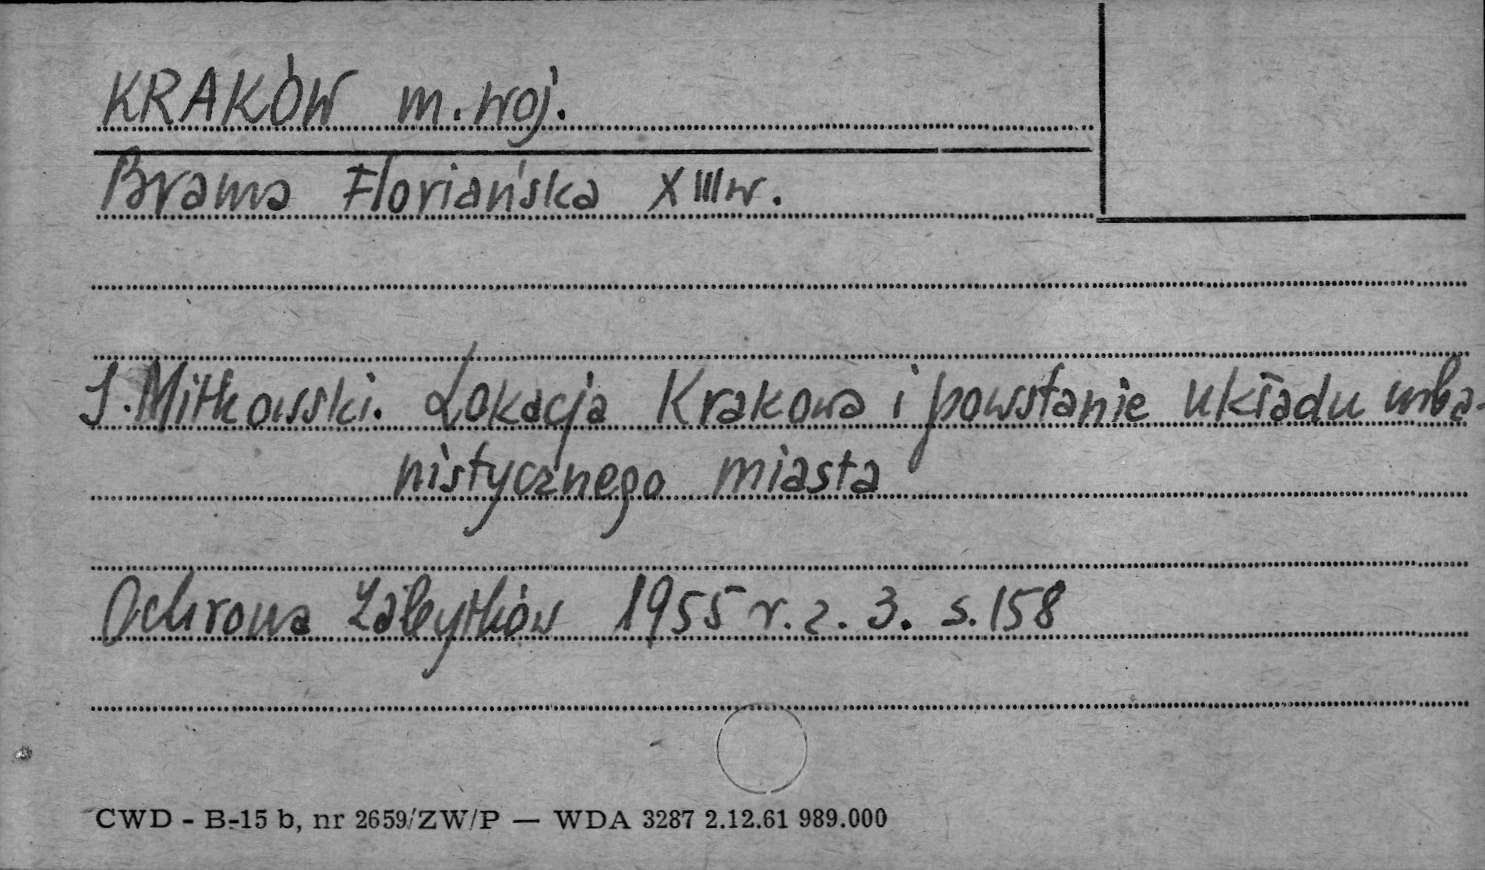 KRAKÓW m. woj.
Brama Floriańska XIII w.
J. Mitkowski. Lokacja Krakowa i powstanie układu urba-
nistycznego miasta
Ochrona Zabytków 1955 r. z. 3. s. 158
CWD - B-15 b, nr 2659/ZW/P — WDA 3287 2.12.61 989.000